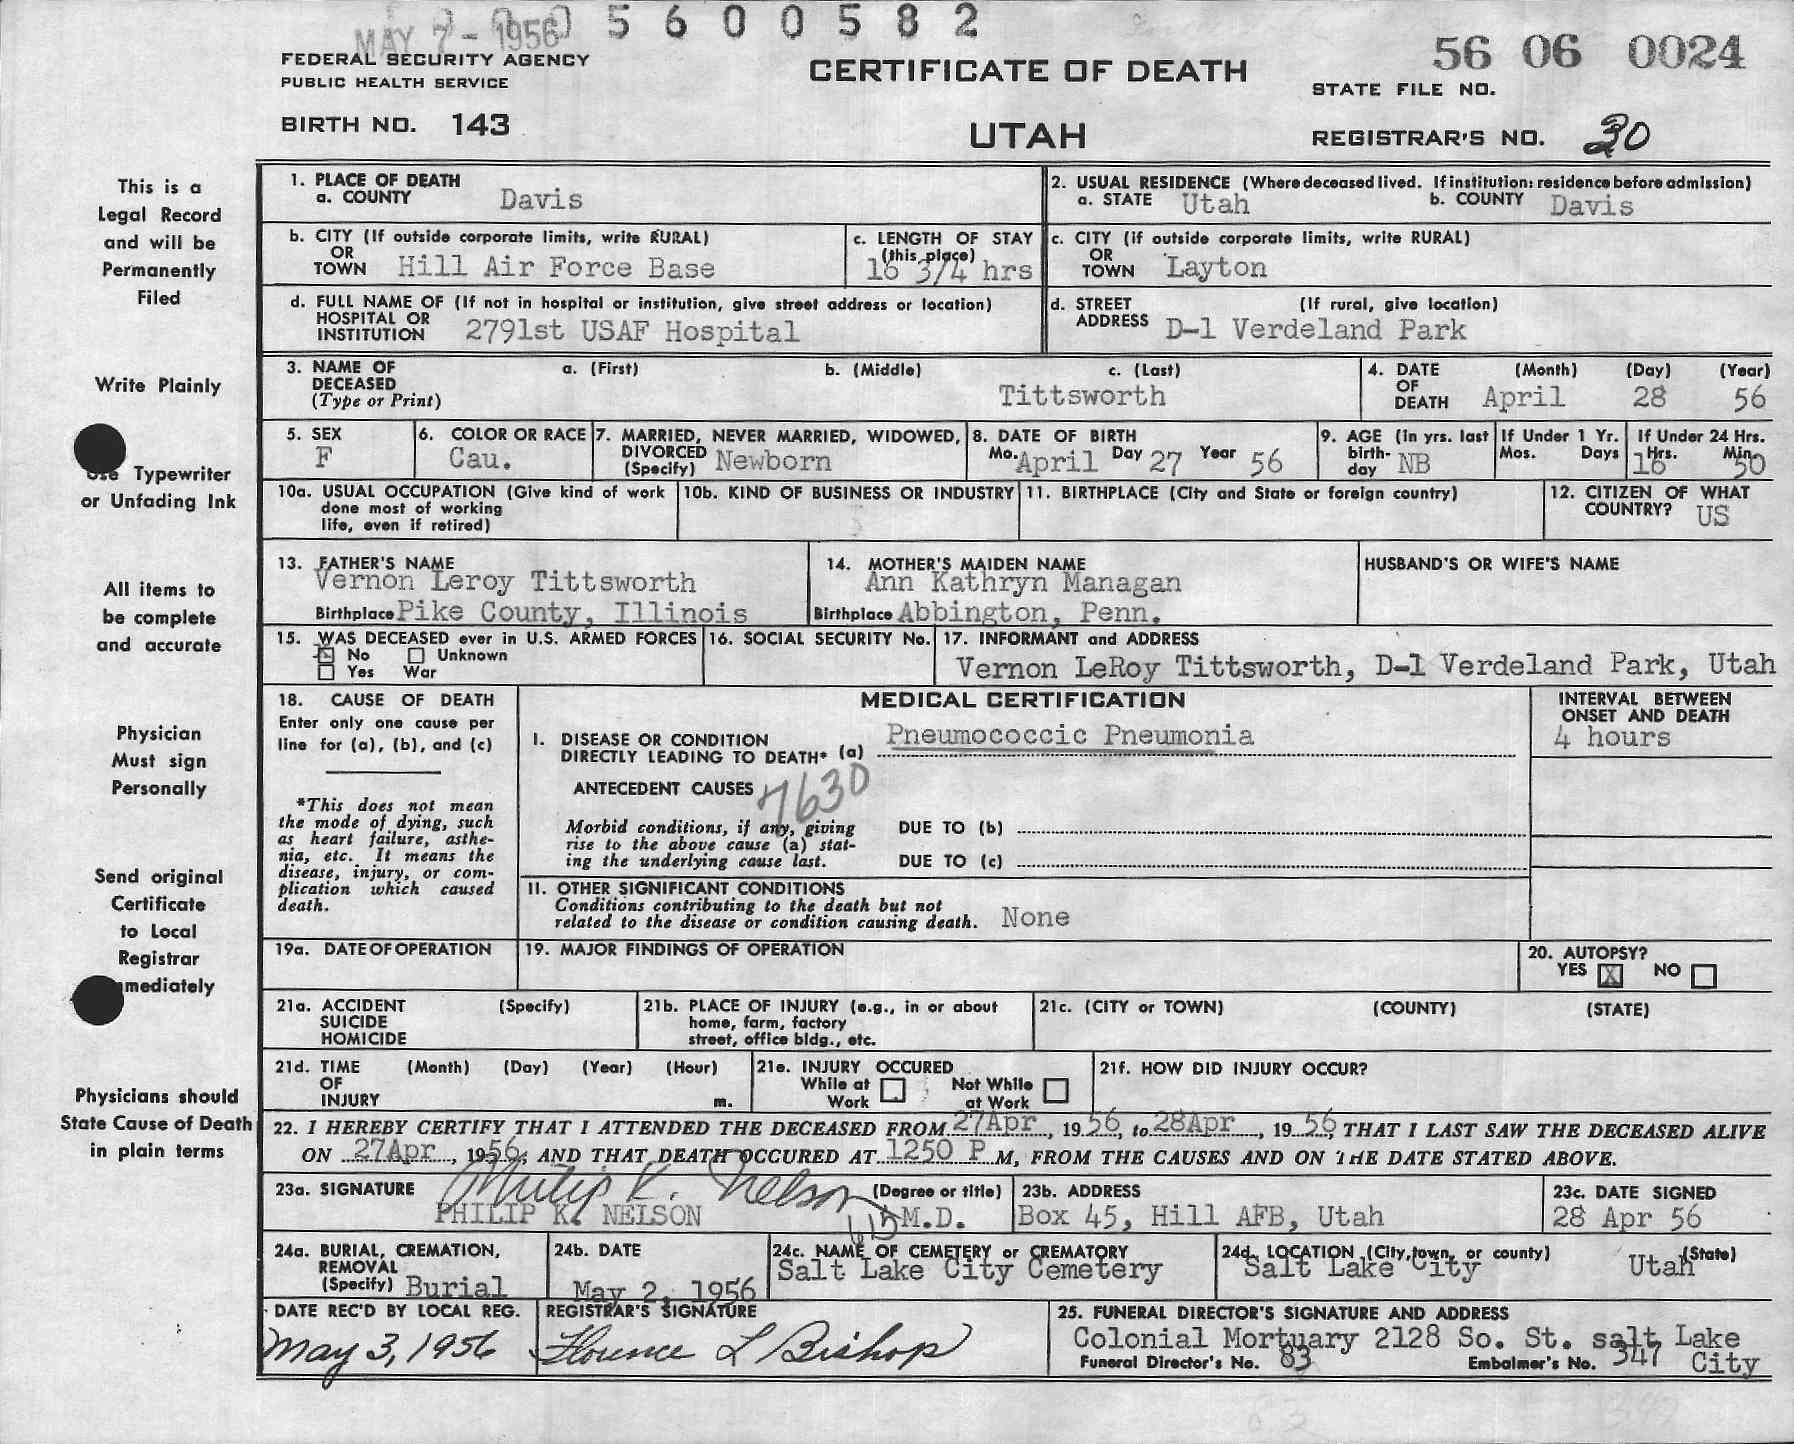 MAY 7 - 1956
5 6 0 0 5 8 2
FEDERAL SECURITY AGENCY
PUBLIC HEALTH SERVICE
BIRTH NO. 143
CERTIFICATE OF DEATH
UTAH
56 06 0024
STATE FILE NO.
REGISTRAR'S NO. 30
This is a
Legal Record
and will be
Permanently
Filed
Write Plainly
Use Typewriter
or Unfading Ink
All items to
be complete
and accurate
Physician
Must sign
Personally
Send original
Certificate
to Local
Registrar
mmediately
Physicians should
State Cause of Death
in plain terms
1. PLACE OF DEATH
a. COUNTY Davis
2. USUAL RESIDENCE (Where deceased lived. If institution: residence before admission)
a. STATE Utah b. COUNTY Davis
b. CITY (If outside corporate limits, write RURAL)
OR
TOWN Hill Air Force Base
c. LENGTH OF STAY
(this place)
16 3/4 hrs
c. CITY (if outside corporate limits, write RURAL)
OR
TOWN Layton
d. FULL NAME OF (If not in hospital or institution, give street address or location)
HOSPITAL OR
INSTITUTION 2791st USAF Hospital
d. STREET (If rural, give location)
ADDRESS D-1 Verdeland Park
3. NAME OF a. (First) b. (Middle) c. (Last)
DECEASED
(Type or Print) Tittsworth
4. DATE (Month) (Day) (Year)
OF
DEATH April 28 56
5. SEX
F
6. COLOR OR RACE
Cau.
7. MARRIED, NEVER MARRIED, WIDOWED,
DIVORCED
(Specify) Newborn
8. DATE OF BIRTH
Mo. April Day 27 Year 56
9. AGE (In yrs. last
birth-
day NB
If Under 1 Yr.
Mos. Days
If Under 24 Hrs.
Hrs. Min.
16 50
10a. USUAL OCCUPATION (Give kind of work
done most of working
life, even if retired)
10b. KIND OF BUSINESS OR INDUSTRY
11. BIRTHPLACE (City and State or foreign country)
12. CITIZEN OF WHAT
COUNTRY? US
13. FATHER'S NAME
Vernon Leroy Tittsworth
Birthplace Pike County, Illinois
14. MOTHER'S MAIDEN NAME
Ann Kathryn Managan
Birthplace Abbington, Penn.
HUSBAND'S OR WIFE'S NAME
15. WAS DECEASED ever in U.S. ARMED FORCES
No Unknown
Yes War
16. SOCIAL SECURITY No.
17. INFORMANT and ADDRESS
Vernon LeRoy Tittsworth, D-1 Verdeland Park, Utah
18. CAUSE OF DEATH
Enter only one cause per
line for (a), (b), and (c)
*This does not mean
the mode of dying, such
as heart failure, asthe-
nia, etc. It means the
disease, injury, or com-
plication which caused
death.
MEDICAL CERTIFICATION
I. DISEASE OR CONDITION
DIRECTLY LEADING TO DEATH* (a) Pneumococcic Pneumonia
ANTECEDENT CAUSES 7630
Morbid conditions, if any, giving
rise to the above cause (a) stat-
ing the underlying cause last.
DUE TO (b)
DUE TO (c)
II. OTHER SIGNIFICANT CONDITIONS
Conditions contributing to the death but not
related to the disease or condition causing death. None
INTERVAL BETWEEN
ONSET AND DEATH
4 hours
19a. DATE OF OPERATION
19. MAJOR FINDINGS OF OPERATION
20. AUTOPSY?
YES X NO
21a. ACCIDENT (Specify)
SUICIDE
HOMICIDE
21b. PLACE OF INJURY (e.g., in or about
home, farm, factory
street, office bldg., etc.
21c. (CITY or TOWN) (COUNTY) (STATE)
21d. TIME (Month) (Day) (Year) (Hour)
OF
INJURY m.
21e. INJURY OCCURED
While at Not While
Work at Work
21f. HOW DID INJURY OCCUR?
22. I HEREBY CERTIFY THAT I ATTENDED THE DECEASED FROM 27Apr, 19 56, to 28Apr, 19 56, THAT I LAST SAW THE DECEASED ALIVE
ON 27Apr, 19 56, AND THAT DEATH OCCURED AT 1250 P M, FROM THE CAUSES AND ON THE DATE STATED ABOVE.
23a. SIGNATURE Philip K. Nelson (Degree or title)
PHILIP K. NELSON MD M.D.
23b. ADDRESS
Box 45, Hill AFB, Utah
23c. DATE SIGNED
28 Apr 56
24a. BURIAL, CREMATION,
REMOVAL
(Specify) Burial
24b. DATE
May 2, 1956
24c. NAME OF CEMETERY or CREMATORY
Salt Lake City Cemetery
24d. LOCATION (City, town, or county) (State)
Salt Lake City Utah
DATE REC'D BY LOCAL REG.
May 3, 1956
REGISTRAR'S SIGNATURE
Florence L Bishop
25. FUNERAL DIRECTOR'S SIGNATURE AND ADDRESS
Colonial Mortuary 2128 So. St. salt Lake
Funeral Director's No. 83 Embalmer's No. 347 City